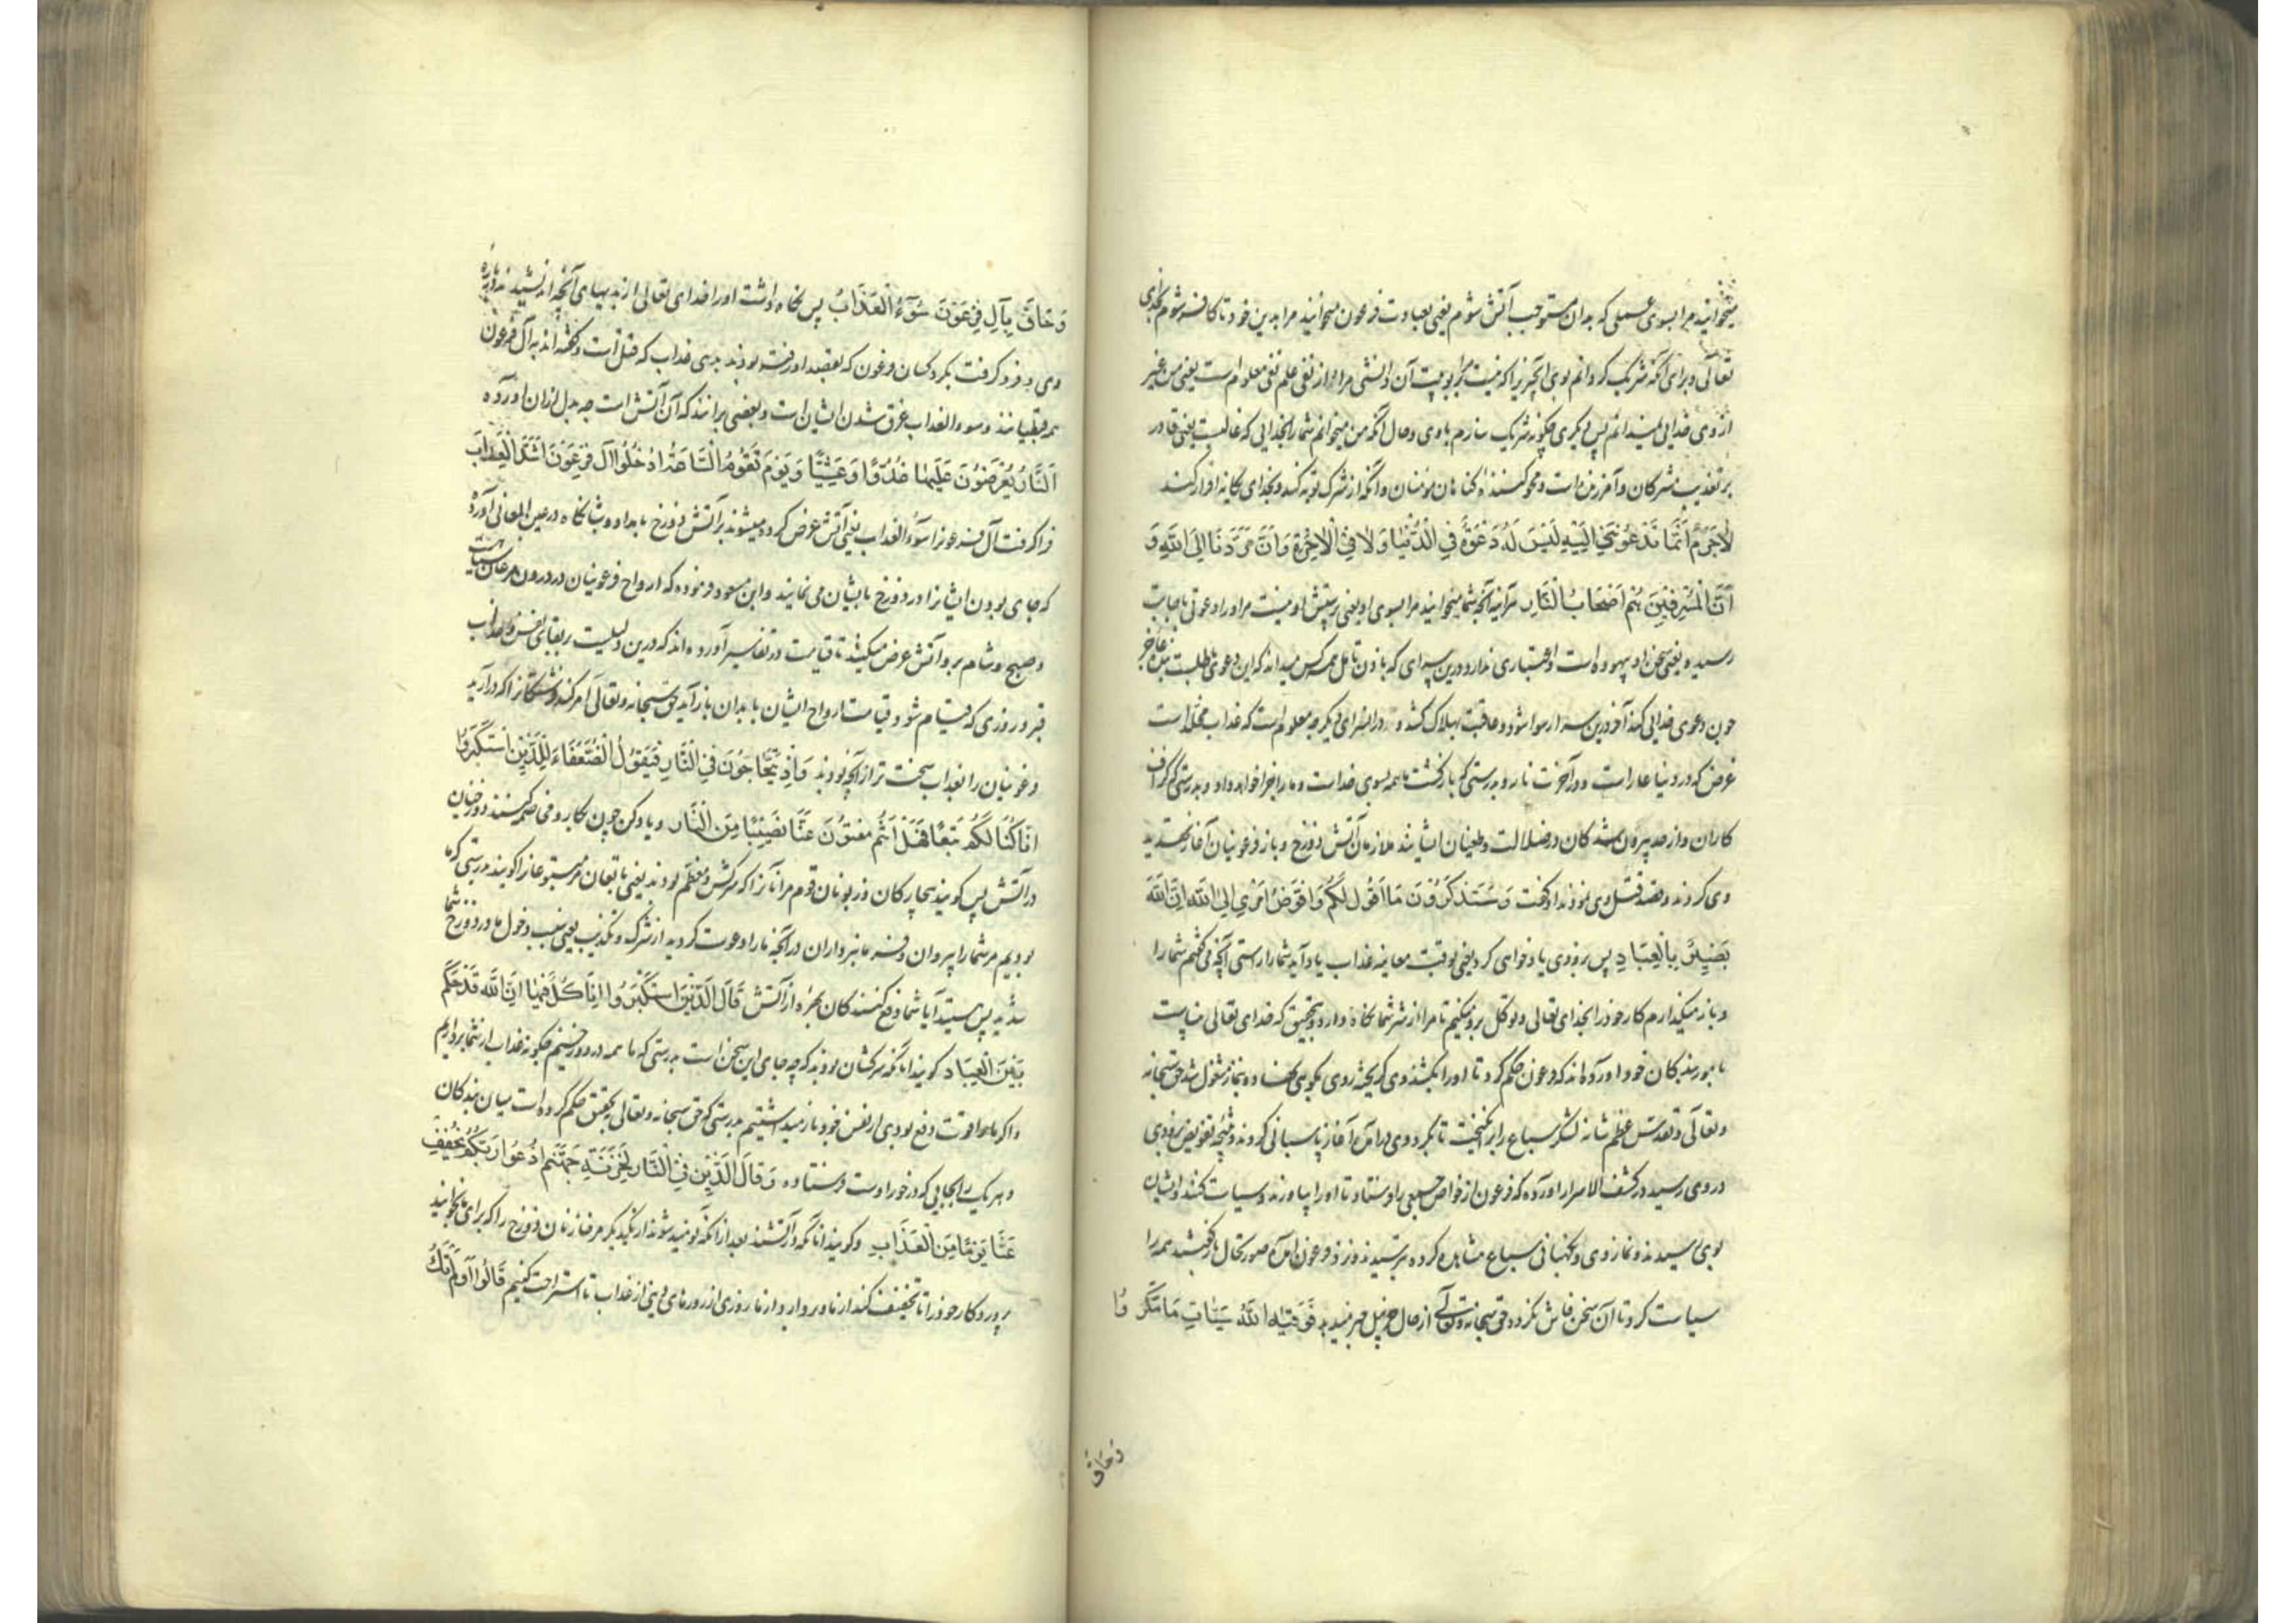 میخوانید مرا بسوی عملی که بدان مستوجب آتش شوم یعنی بعبادت فرعون میخوانید مرا بدین خود تا کافر شوم بخدای
تعالی و برای آنکه شریک گردانم بوی آنچیز را که نیست مرا بربوبیت آن دانشی مراد از نفی علم نفی معلوم است یعنی من غیر
از وی خدایی نمیدانم پس دیگری چگونه شریک سازم باوی و حال آنکه من میخوانم شما را بخدایی که غالبست یعنی قادر
بر تعذیب مشرکان و آمرزنده است و محو کننده گناهان مؤمنان و آنکه از شرک توبه کند و بخدای یگانه اقرار کند
لاَجَرَمَ اَنَّمَا تَدْعُونَنِی اِلَیْهِ لَیْسَ لَهُ دَعْوَةٌ فِی الدُّنْیَا وَلاَ فِی الْاٰخِرَةِ وَاَنَّ مَرَدَّنَا اِلَی اللّٰهِ وَ
اَنَّ الْمُسْرِفِینَ هُمْ اَصْحَابُ النَّارِ هر آینه آنچه شما میخوانید مرا بسوی او یعنی پرستش او نیست مر او را دعوتی باجابت
رسیده یعنی سخن او بیهوده است و اعتباری ندارد درین سرای که باذن تامل همه کس میداند که این دعوی باطلست بنده عاجز
چون دعوی خدایی کند آخر درین سرا رسوا شود و عاقبت بهلاک کشد و در انسرای دیگر چه معلوم است که عذاب مخلد است
غرض که در دنیا عار است و در آخرت نار و بدرستی که بازگشت ما همه بسوی خداست و ما را جزا خواهد داد و بدرستی که گزاف
کاران و از حد بیرون شدگان در ضلالت و طغیان ایشانند ملازمان آتش دوزخ و باز فرعونیان آغاز تهدید
وی کردند و قصد قتل وی نمودند او گفت وَسَتَذْکُرُونَ مَا اَقُولُ لَکُمْ وَاُفَوِّضُ اَمْرِی اِلَی اللّٰهِ اِنَّ اللّٰهَ
بَصِیرٌ بِالْعِبَادِ پس بزودی یاد خواهی کرد یعنی بوقت معاینه عذاب یاد آید شما را راستی آنچه می گفتم شما را
و باز میگذارم کار خود را بخدای تعالی و توکل بر وی میکنم تا مرا از شر شما نگاه دارد و بتحقیق که خدای تعالی بیناست
بامور بندگان خود آورده اند که فرعون حکم کرد تا او را بکشند وی گریخته روی بکوهی نهاد و بنماز مشغول شد حق سبحانه
و تعالی و تقدس عظم شانه لشکر سباع را برانگیخت تا بگرد وی درآمده آغاز پاسبانی کردند و نتیجه تفویض بزودی
در وی رسید در کشف الاسرار آورده که فرعون از خواص جمعی را فرستاد تا او را بیاورند و سیاست کنند و ایشان
بوی رسیدند و نماز وی و نگهبانی سباع مشاهده کرده بترسیدند و نزد فرعون آمده صورتحال بازگفتند همه را
سیاست کرد تا آن سخن فاش نکرده حق سبحانه و تعالی از حال حزبیل خبر میدهد فَوَقٰیهُ اللّٰهُ سَیِّئَاتِ مَا مَکَرُوا
وَحَاقَ
وَحَاقَ بِاٰلِ فِرْعَوْنَ سُوءُ الْعَذَابِ پس نگاه داشت او را خدای تعالی از بدیهای آنچه اندیشیدند درباره
وی و فرو گرفت بگرد کسان فرعون که بقصد او رفته بودند بدی عذاب که قتل است و گفته اند به آل فرعون
همه قبطیانند و سوء العذاب غرق شدن ایشان است و بعضی برانند که آن آتش است چه بدل ازان آورده
اَلنَّارُ یُعْرَضُونَ عَلَیْهَا غُدُوًّا وَعَشِیًّا وَیَوْمَ تَقُومُ السَّاعَةُ اَدْخِلُوا اٰلَ فِرْعَوْنَ اَشَدَّ الْعَذَابِ
فرا گرفت آل فرعون را سوء العذاب یعنی آتش عرض کرده میشوند بر آتش دوزخ بامداد و شبانگاه در عین المعانی آورده
که جای بودن ایشان را در دوزخ بایشان می نمایند و ابن مسعود فرموده که ارواح فرعونیان در درون مرغان سیاه است
و صبح و شام بر وی آتش عرض میکنند تا قیامت در تفاسیر آورده اند که درین دلیلست بر بقای نفس و عذاب
قبر و روزی که قیام شود قیامت ارواح ایشان بابدان باز آید حق سبحانه و تعالی امر کند فرشتگان را که درآرید
فرعونیان را بعذاب سخت تر از آنچه بودند وَاِذْ یَتَحَاجُّونَ فِی النَّارِ فَیَقُولُ الضُّعَفَاءُ لِلَّذِینَ اسْتَکْبَرُوا
اِنَّا کُنَّا لَکُمْ تَبَعًا فَهَلْ اَنْتُمْ مُغْنُونَ عَنَّا نَصِیبًا مِنَ النَّارِ و یاد کن چون مخاصمه کنند دوزخیان
در آتش پس گویند بیچارگان و زبونان قوم مر آنان را که سرکش و معظم بودند یعنی تابعان مر متبوعان را گویند بدرستی که ما
بودیم مر شما را پیروان و فرمانبرداران در آنچه ما را دعوت کردید از شرک و تکذیب یعنی سبب دخول ما در دوزخ شما
شدید پس هستید آیا شما دفع کنندگان بهره از آتش قَالَ الَّذِینَ اسْتَکْبَرُوا اِنَّا کُلٌّ فِیهَا اِنَّ اللّٰهَ قَدْ حَکَمَ
بَیْنَ الْعِبَادِ گویند آنانکه سرکشان بودند که چه جای این سخن است بدرستی که ما همه در دوزخیم چگونه عذاب از شما برداریم
و اگر ما را قوت دفع بودی از نفس خود باز میداشتیم بدرستی که حق سبحانه و تعالی بتحقیق حکم کرده است میان بندگان
و هر یک را بجایی که درخور اوست فرستاده وَقَالَ الَّذِینَ فِی النَّارِ لِخَزَنَةِ جَهَنَّمَ ادْعُوا رَبَّکُمْ یُخَفِّفْ
عَنَّا یَوْمًا مِنَ الْعَذَابِ و گویند آنانکه در آتشند بعد از آنکه نومید شوند از یکدیگر مر خازنان دوزخ را که برای ما بخوانید
پروردگار خود را تا تخفیف کند از ما و بردارد از ما روزی از روزهای دنیا از عذاب تا استراحت کنیم قَالُوا اَوَلَمْ تَکُ